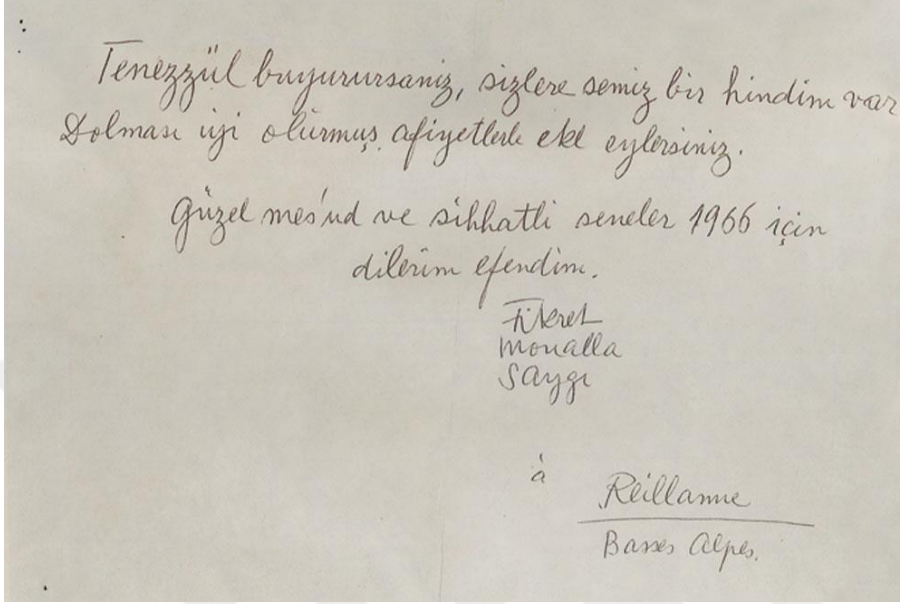 Tenezzül buyurursanız, sizlere semiz bir hindim var
Dolması iyi olurmuş, afiyetlerle ekl eylersiniz.
Güzel mes'ud ve sihhatli seneler 1966 için
dilerim efendim.
Fikret
Moualla
Saygı
à
Reillanne
Basses Alpes.